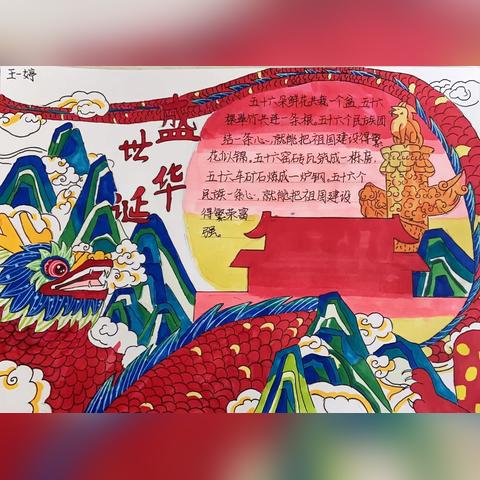 王一婷
盛
世
华
诞
五十六朵鲜花共栽一个盆,五十六
棵翠竹共连一条根,五十六个民族团
结一条心,就能把祖国建设得繁
花似锦,五十六窑砖瓦筑成一栋
五十六车矿石炼成一炉钢,五十六个
民族一条心,就能把祖国建设
得繁荣富
强。